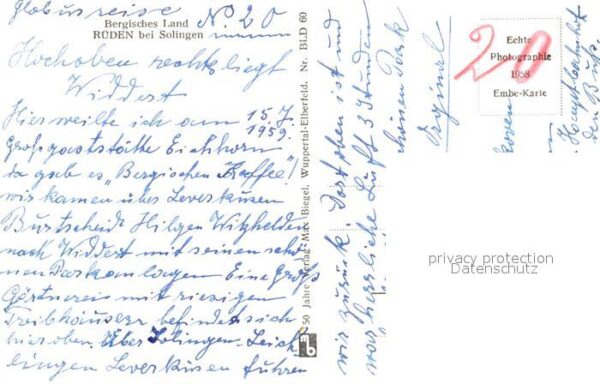 Globusreise
Bergisches Land
RÜDEN bei Solingen
No 20
Hochoben rechts liegt
Widdert
Hier weilte ich am 15. J.
1959.
Großgaststätte Eichhorn
da gab es „Bergischen Kaffee"!
wir kamen über Leverkusen
Burtscheid Hilgen Witzhelden
nach Widdert mit seinen schö
nen Parkanlagen Eine Groß
Gärtnerei mit riesigen
Treibhäuser befindet sich
hier oben. Über Solingen Leich
lingen Leverkusen fuhren
50 Jahre Verlag Max Biegel, Wuppertal-Elberfeld. Nr. BLD 60
mb
wir zurück. Dort oben ist und
war herrliche Luft 3 Stunden
schönen Park
Orginal
20
Echte
Photographie
1958
Embe-Karte
Hauptbahnhof
den Bus.
privacy protection
Datenschutz